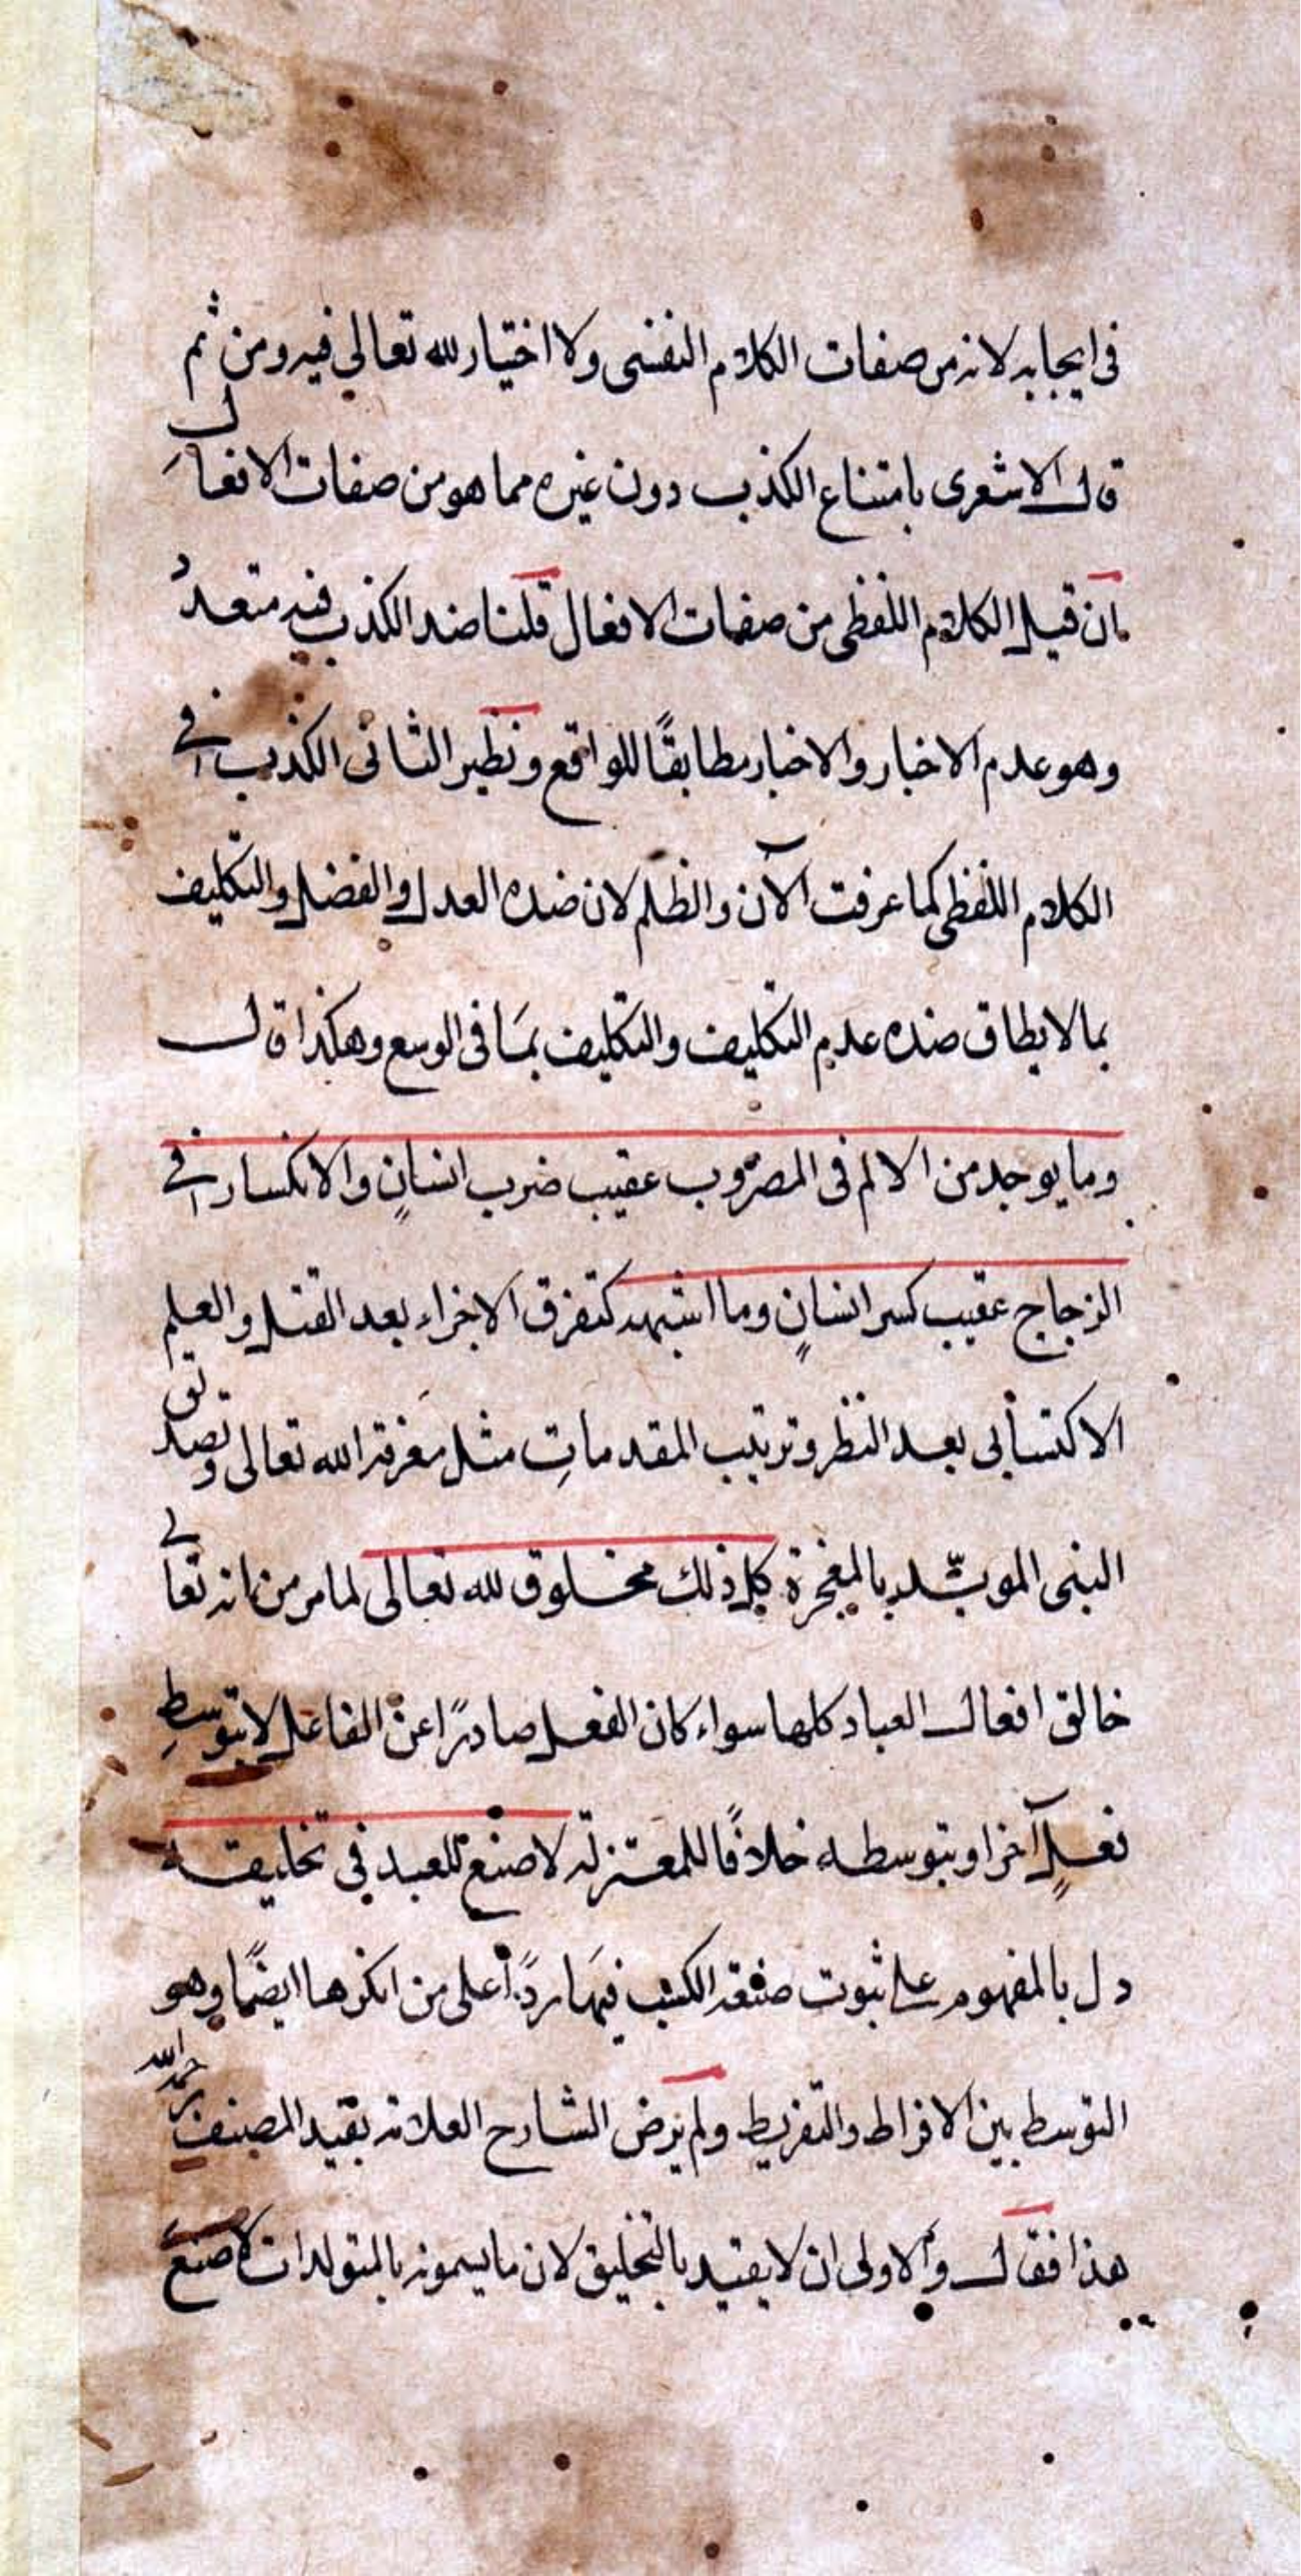 في ايجابه لانه من صفات الكلام النفسى ولا اختيار لله تعالي فيه ومن ثم
قال الاشعرى بامتناع الكذب دون غيره مما هو من صفات الافعال
ان قيل الكلام اللفظى من صفات الافعال قلنا ضد الكذب فيه متعدد
وهو عدم الاخبار والاخبار مطابقًا للواقع ونظير الثانى الكذب في
الكلام اللفظى كما عرفت الآن والظلم لان ضده العدل والفضل والتكليف
بما لا يطاق ضده عدم التكليف والتكليف بمَا فى الوسع وهكذا قال
وما يوجد من الالم فى المضروب عقيب ضرب انسانٍ والانكسار في
الزجاج عقيب كسر انسانٍ وما اشبهه كتفرق الاجزاء بعد القتل والعلم
الاكتسابى بعد النظر وترتيب المقدماتِ مثل مَعرفة الله تعالى وتصديق
النبى المويّد بالمعجزة كل ذلك مخلوق لله تعالى لما مر من انه تعالى
خالق افعال العباد كلها سواء كان الفعل صادرًا عن الفاعل لا بتوسطِ
فعلٍ آخر او بتوسطه خلافًا للمعتزلة لا صنع للعبد في تخليقه
دل بالمفهوم على ثبوت صنعة الكسب فيهَا ردًا على من انكرها ايضًا وهو
التوسط بين الافراط والتفريط ولم يرض الشارح العلامة بقيد المصنف رحمه الله
هذا فقال والاولى ان لا يقيد بالتخليق لان ما يسمونه بالمتولدات لا صنعَ